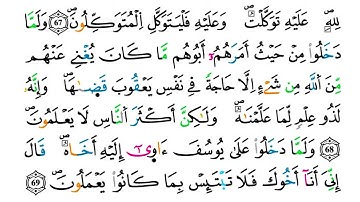 لِلَّهِ ۖ عَلَيْهِ تَوَكَّلْتُ ۖ وَعَلَيْهِ فَلْيَتَوَكَّلِ الْمُتَوَكِّلُونَ ٦٧ وَلَمَّا
دَخَلُوا مِنْ حَيْثُ أَمَرَهُمْ أَبُوهُم مَّا كَانَ يُغْنِي عَنْهُم
مِّنَ اللَّهِ مِن شَيْءٍ إِلَّا حَاجَةً فِي نَفْسِ يَعْقُوبَ قَضَىٰهَا ۚ وَإِنَّهُ
لَذُو عِلْمٍ لِّمَا عَلَّمْنَٰهُ وَلَٰكِنَّ أَكْثَرَ النَّاسِ لَا يَعْلَمُونَ
٦٨ وَلَمَّا دَخَلُوا عَلَىٰ يُوسُفَ ءَاوَىٰٓ إِلَيْهِ أَخَاهُ ۖ قَالَ
إِنِّي أَنَا۠ أَخُوكَ فَلَا تَبْتَئِسْ بِمَا كَانُوا يَعْمَلُونَ ٦٩